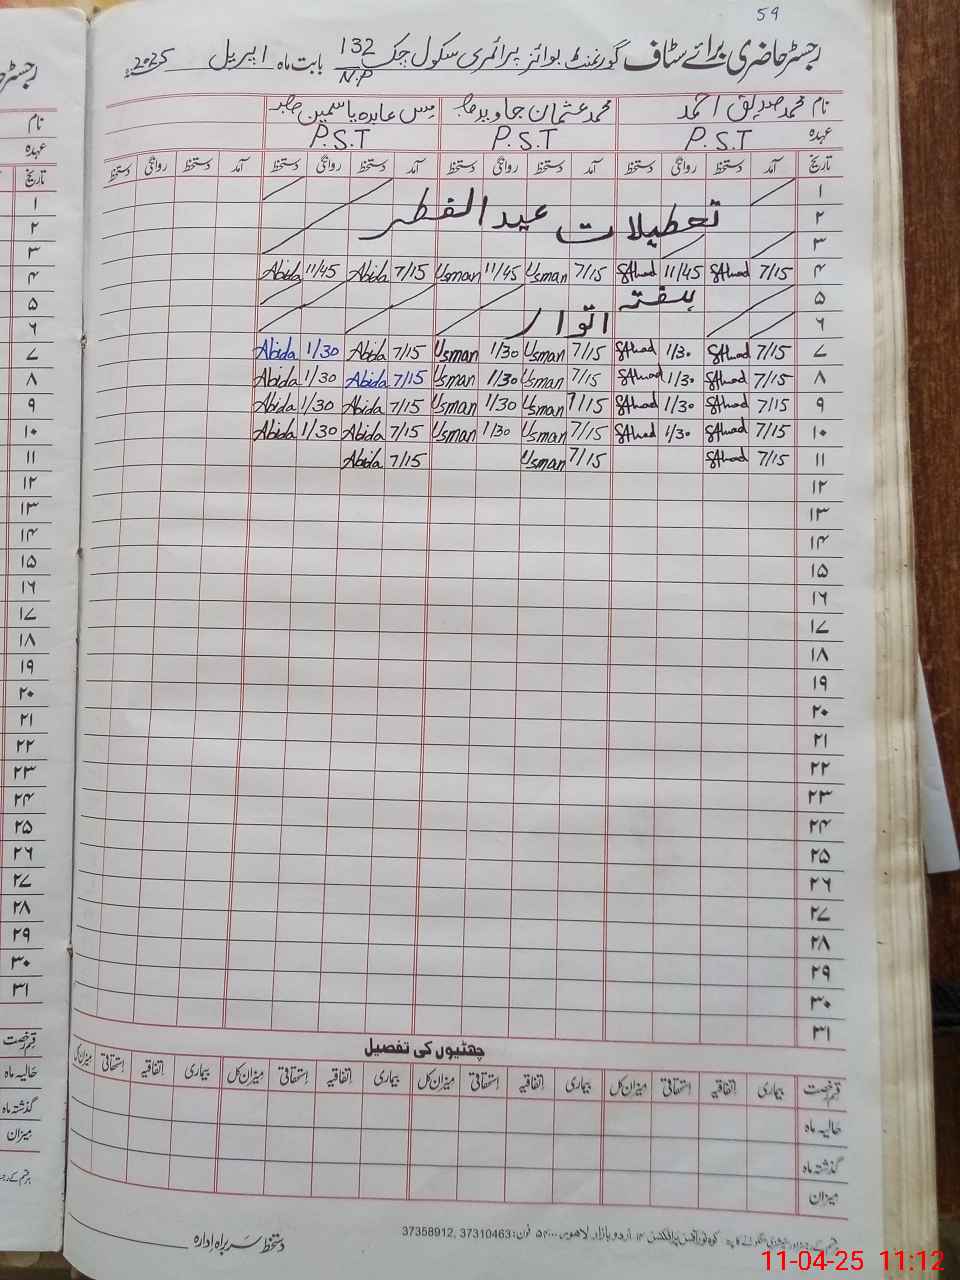 59
رجسٹر حاضری برائے سٹاف گورنمنٹ بوائز پرائمری سکول چک 132 N.P بابت ماہ اپریل 2025ء
نام محمد صدیق احمد محمد عثمان جاوید مس عابدہ یاسمین
عہدہ P.S.T P.S.T P.S.T
تاریخ آمد دستخط روانگی دستخط آمد دستخط روانگی دستخط آمد دستخط روانگی دستخط آمد دستخط روانگی دستخط
۱
۲ تعطیلات عید الفطر
۳
۴ 7/15 SAhad 11/45 SAhad 7/15 Usman 11/45 Usman 7/15 Abida 11/45 Abida
۵ ہفتہ
۶ اتوار
۷ 7/15 SAhad 1/30 SAhad 7/15 Usman 1/30 Usman 7/15 Abida 1/30 Abida
۸ 7/15 SAhad 1/30 SAhad 7/15 Usman 1/30 Usman 7/15 Abida 1/30 Abida
۹ 7/15 SAhad 1/30 SAhad 7/15 Usman 1/30 Usman 7/15 Abida 1/30 Abida
۱۰ 7/15 SAhad 1/30 SAhad 7/15 Usman 1/30 Usman 7/15 Abida 1/30 Abida
۱۱ 7/15 SAhad 7/15 Usman 7/15 Abida
۱۲
۱۳
۱۴
۱۵
۱۶
۱۷
۱۸
۱۹
۲۰
۲۱
۲۲
۲۳
۲۴
۲۵
۲۶
۲۷
۲۸
۲۹
۳۰
۳۱
چھٹیوں کی تفصیل
قسم رخصت بیماری اتفاقیہ استحقاقی میزان کل بیماری اتفاقیہ استحقاقی میزان کل بیماری اتفاقیہ استحقاقی میزان کل بیماری اتفاقیہ استحقاقی میزان کل
حالیہ ماہ
گذشتہ ماہ
میزان
اردو بازار لاہور فون: 37310463, 37358912
دستخط سربراہ ادارہ
نام
عہدہ
تاریخ
۱
۲
۳
۴
۵
۶
۷
۸
۹
۱۰
۱۱
۱۲
۱۳
۱۴
۱۵
۱۶
۱۷
۱۸
۱۹
۲۰
۲۱
۲۲
۲۳
۲۴
۲۵
۲۶
۲۷
۲۸
۲۹
۳۰
۳۱
قسم رخصت
حالیہ ماہ
گذشتہ ماہ
میزان
11-04-25 11:12